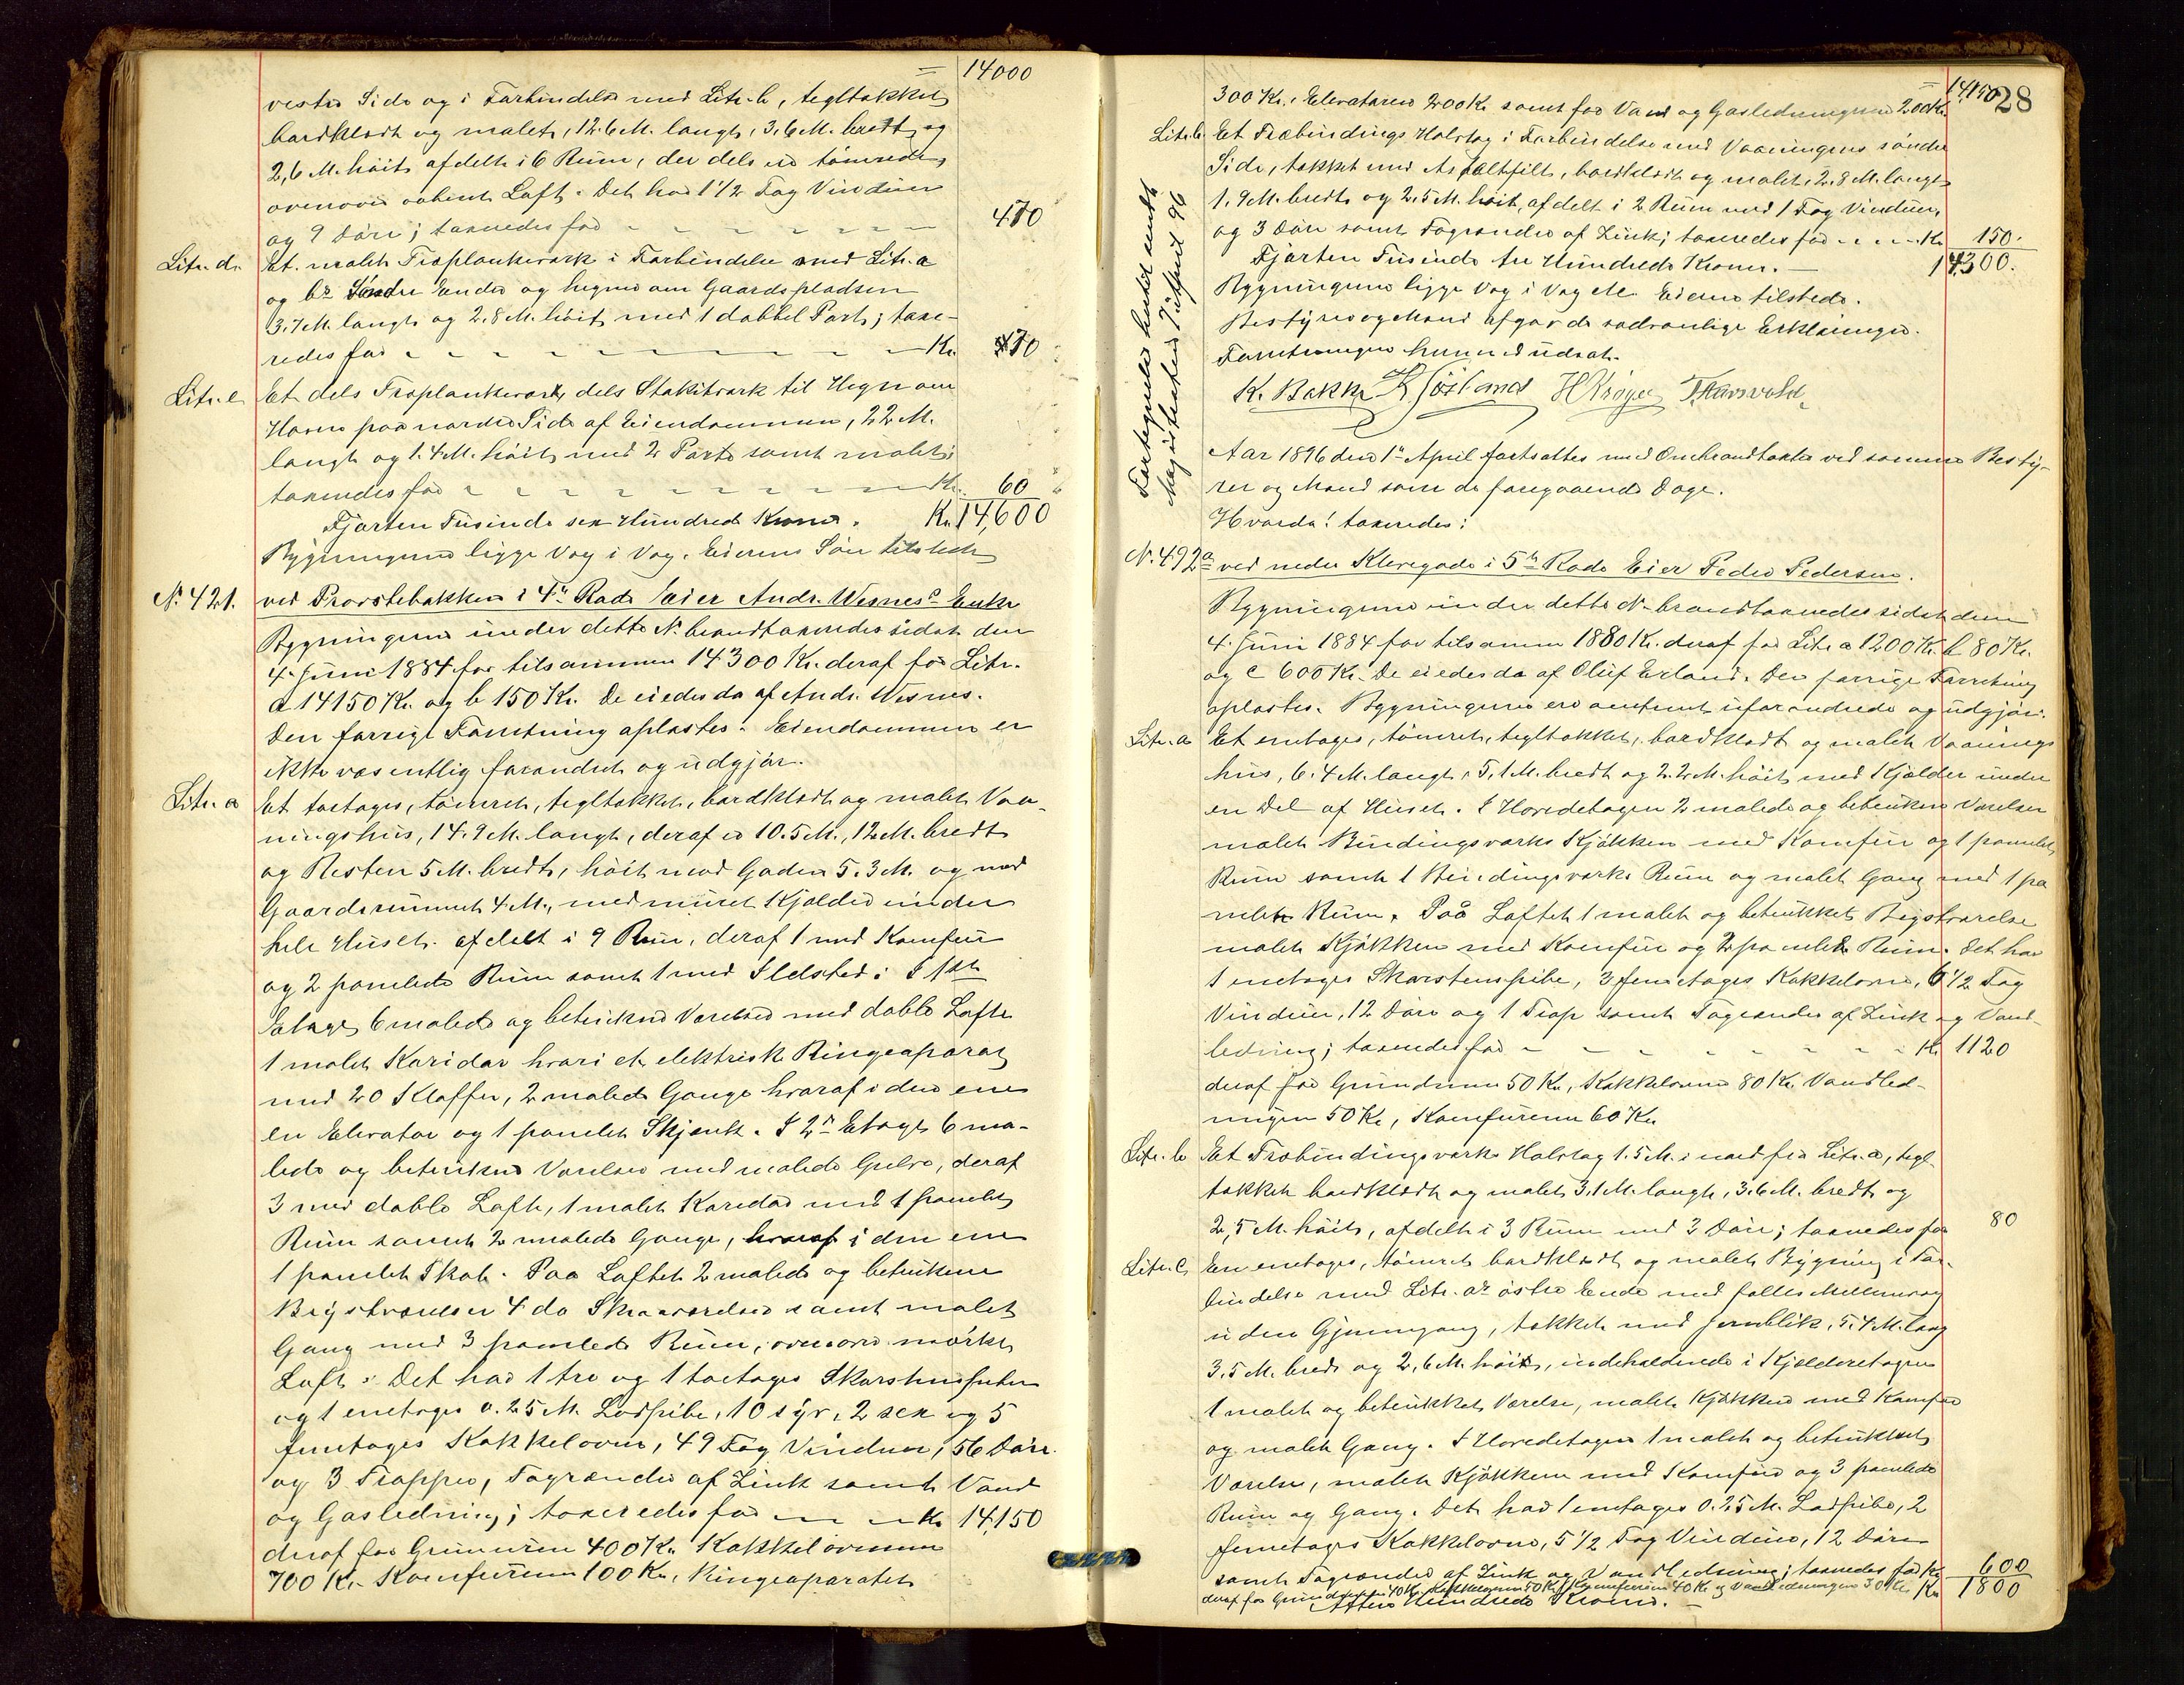 = 14000
vestre Side og i Forbindelse med Litr. b, tegltækket
bordklædt og malet, 12.6 M. langt, 3,6 M. bredt og
2,6 M. höit, afdelt i 6 Rum, der dels er tömrede,
ovenover aabent Loft. Det har 1 1/2 Fag Vinduer
og 9 Döre; taxeredes for - - - 470
Litr. d. Et malet Træplankeværk i Forbindelse med Litr. a
og b's Söndre Ender og hegner om Gaardspladsen
3.7 M. langt og 2.8 M. höit, med 1 dobbel Port; taxe-
redes for - - - Kr. 70
Litr. e Et dels Træplankeværk, dels Stakitværk til Hegn om
Haven paa nordre Side af Eiendommen, 22 M.
langt og 1.4 M. höit, med 2 Porte samt malet;
taxeredes for - - - Kr. 60
Fjorten Tusinde sex Hundrede Kroner. Kr. 14,600
Bygningerne ligge Væg i Væg. Eierens Sön tilstede
N. 421. ved Provstebakken i 4de Rode Eier Andr. Wesnes's Enke
Bygningerne under dette N. brandtaxeredes sidst den
4. Juni 1884 for tilsammen 14300 Kr. deraf for Litr.
a 14150 Kr. og b 150 Kr. De eiedes da af Andr. Wesnes.
Den forrige Forretning oplæstes. Eiendommen er
ikke væsentlig forandret og udgjör.
Litr. a Et toetages, tömret, tegltækket, bordklædt og malet Vaa-
ningshus, 14.9 M. langt, deraf er 10.5 M., 12 M. bredt
og Resten 5 M. bredt, höit mod Gaden 5.3 M. og mod
Gaardsrummet 4 M., med muret Kjælder under
hele Huset. afdelt i 9 Rum, deraf 1 med Komfur
og 2 panelede Rum samt 1 med Ildsted: I 1ste
Etage 6 malede og betrukne Værelser med doble Lofte
1 malet Koridor hvori et elektrisk Ringeaparat
med 20 Klaffer, 2 malede Gange hvoraf i den ene
en Elevator og 1 panelet Skjænk. I 2n Etage 6 ma-
lede og betrukne Værelser med malede Gulve, deraf
3 med doble Lofte, 1 malet Koridor med 1 panelet
Rum samt 2 malede Gange, hvoraf i den ene
1 panelet Skab. Paa Loftet 2 malede og betrukne
Brystværelser 4 do Skraaværelser samt malet
Gang med 3 panelede Rum, ovenover mörkt
Loft. Det har 1 tre og 1 toetages Skorstenspiber
og 1 enetages 0.25 M. Lodpibe, 10 syv, 2 sex og 5
femetages Kakkelovne, 49 Fag Vinduer, 56 Döre
og 3 Trapper, Tagrender af Zink samt Vand
og Gasledning; taxeredes for - - - Kr. 14,150
deraf for Grunmuren 400 Kr. Kakkelovnene
700 Kr. Komfurene 100 Kr. Ringeaparatet
= 14,150 28
300 Kr., Elevatoren 200 Kr. samt for Vand og Gasledningerne 200 Kr.
Litr. b Et Træbindings Halvtag i Forbindelse med Vaaningens söndre
Side, tækket med Asfaltfilt, bordklædt og malet, 2.8 M. langt
1.9 M. bredt og 2.5 M. höit, afdelt i 2 Rum med 1 Fag Vinduer,
og 3 Döre samt Tagrender af Zink; taxeredes for - - - Kr. 150.
Fjorten Tusinde tre Hundrede Kroner. — 14300.
Bygningerne ligge Væg i Væg Eieren tilstede.
Bestyrer og Mænd afgav de sædvanlige Erklæringer.
Forretningen hermed udsat.
K. Bakke K Josland H Kröyer T. Haarvold
Fortegnelse herfra sendt
Magistraten 7 April 96
Aar 1896 den 1n April fortsattes med Ombrandtaxter ved samme Besty-
rer og Mænd som de foregaaende Dage.
Hvorda! taxeredes:
N. 492a ved nedre Klevegade i 5te Rode Eier Peder Pedersen.
Bygningerne under dette N. brandtaxeredes sidst den
4. Juni 1884 for tilsammen 1880 Kr. deraf for Litr. a 1200 Kr. b 80 Kr.
og c 600 Kr. De eiedes da af Oluf Erland. Den forrige Forretning
oplæstes. Bygningerne ere omtrent uforandrede og udgjör.
Litr. a Et enetages, tömret, tegltækket, bordklædt og malet Vaanings
hus, 6.4 M. langt, 5,1 M. bredt og 2.2 M. höit med Kjælder under
en Del af Huset. I Hovedetagen 2 malede og betrukne Værelser
malet Bindingsværks Kjökken med Komfur og 1 panelet
Rum samt 1 Bindingsværks Rum og malet Gang med 1 pa
nelet Rum. Paa Loftet 1 malet og betrukket Brystværelse
malet Kjökken med Komfur og 2 panelede Rum. Det har
1 enetages Skorstenspibe, 3 femetages Kakkelovne, 6 1/2 Fag
Vinduer, 12 Döre og 1 Trap samt Tagrender af Zink og Vand-
ledning; taxeredes for - - - Kr. 1120
deraf for Grundmur 50 Kr., Kakkelovne 80 Kr. Vandled-
ningen 50 Kr., Komfurene 60 Kr.
Litr. b Et Træbindingsværks Halvtag 1.5 M. i nord fra Litr. a, tegl-
tækket bordklædt og malet 3,1 M. langt, 3.6 M. bredt og
2,5 M. höit, afdelt i 3 Rum med 3 Döre; taxeredes for 80
Litr. c En enetages, tömret bordklædt og malet Bygning i For-
bindelse med Litr. a's östre Ende med fælles Mellemvæg
uden Gjennemgang, tækket med Jernblik, 5.4 M. lang
3.5 M. bred og 2,6 M. höi, indeholdende i Kjælderetagen
1 malet og betrukket Værelse, malet Kjökken med Komfur
og malet Gang. I Hovedetagen 1 malet og betrukket
Værelse, malet Kjökken med Komfur og 3 panelede
Rum og Gang. Det har 1 enetages 0.25 M. Lodpibe, 2
femetages Kakkelovne, 5 1/2 Fag Vinduer, 12 Döre
samt Tagrender af Zink og Vandledning; taxeredes for Kr. 600
deraf for Grundmuren 40 Kr. Kakkelovnene 50 Kr. Komfurene 40 Kr. og Vandledningen 30 Kr. Kr. 1800
Atten Hundrede Kroner. —